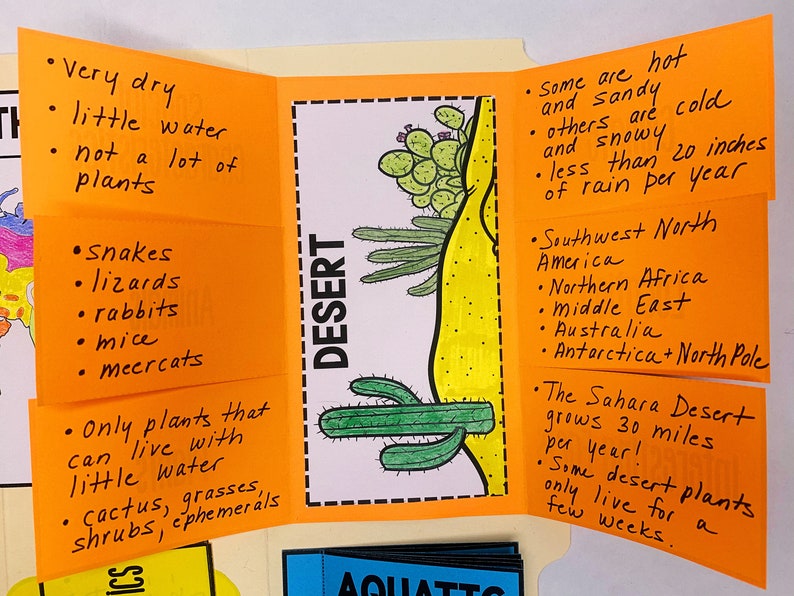 • Very dry
• little water
• not a lot of
plants
• snakes
• lizards
• rabbits
• mice
• meercats
• Only plants that
can live with
little water
• cactus, grasses,
shrubs, ephemerals
DESERT
• Some are hot
and sandy
• others are cold
and snowy
• less than 20 inches
of rain per year
• Southwest North
America
• Northern Africa
• Middle East
• Australia
• Antarctica + North Pole
• The Sahara Desert
grows 30 miles
per year!
• Some desert plants
only live for a
few weeks.
TH
ICS
AQUATIC